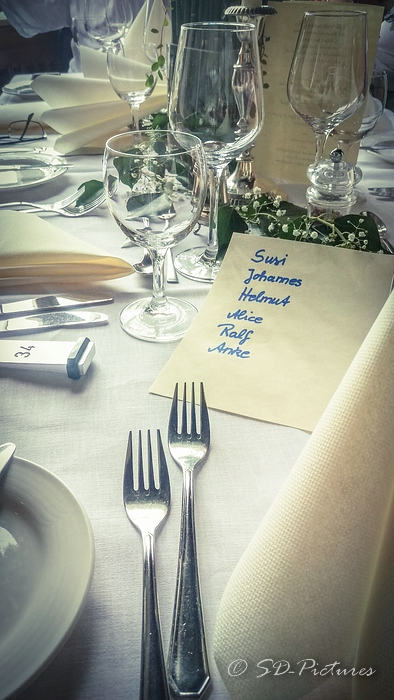 Susi
Johannes
Helmut
Alice
Ralf
Anke
34
© SD-Pictures